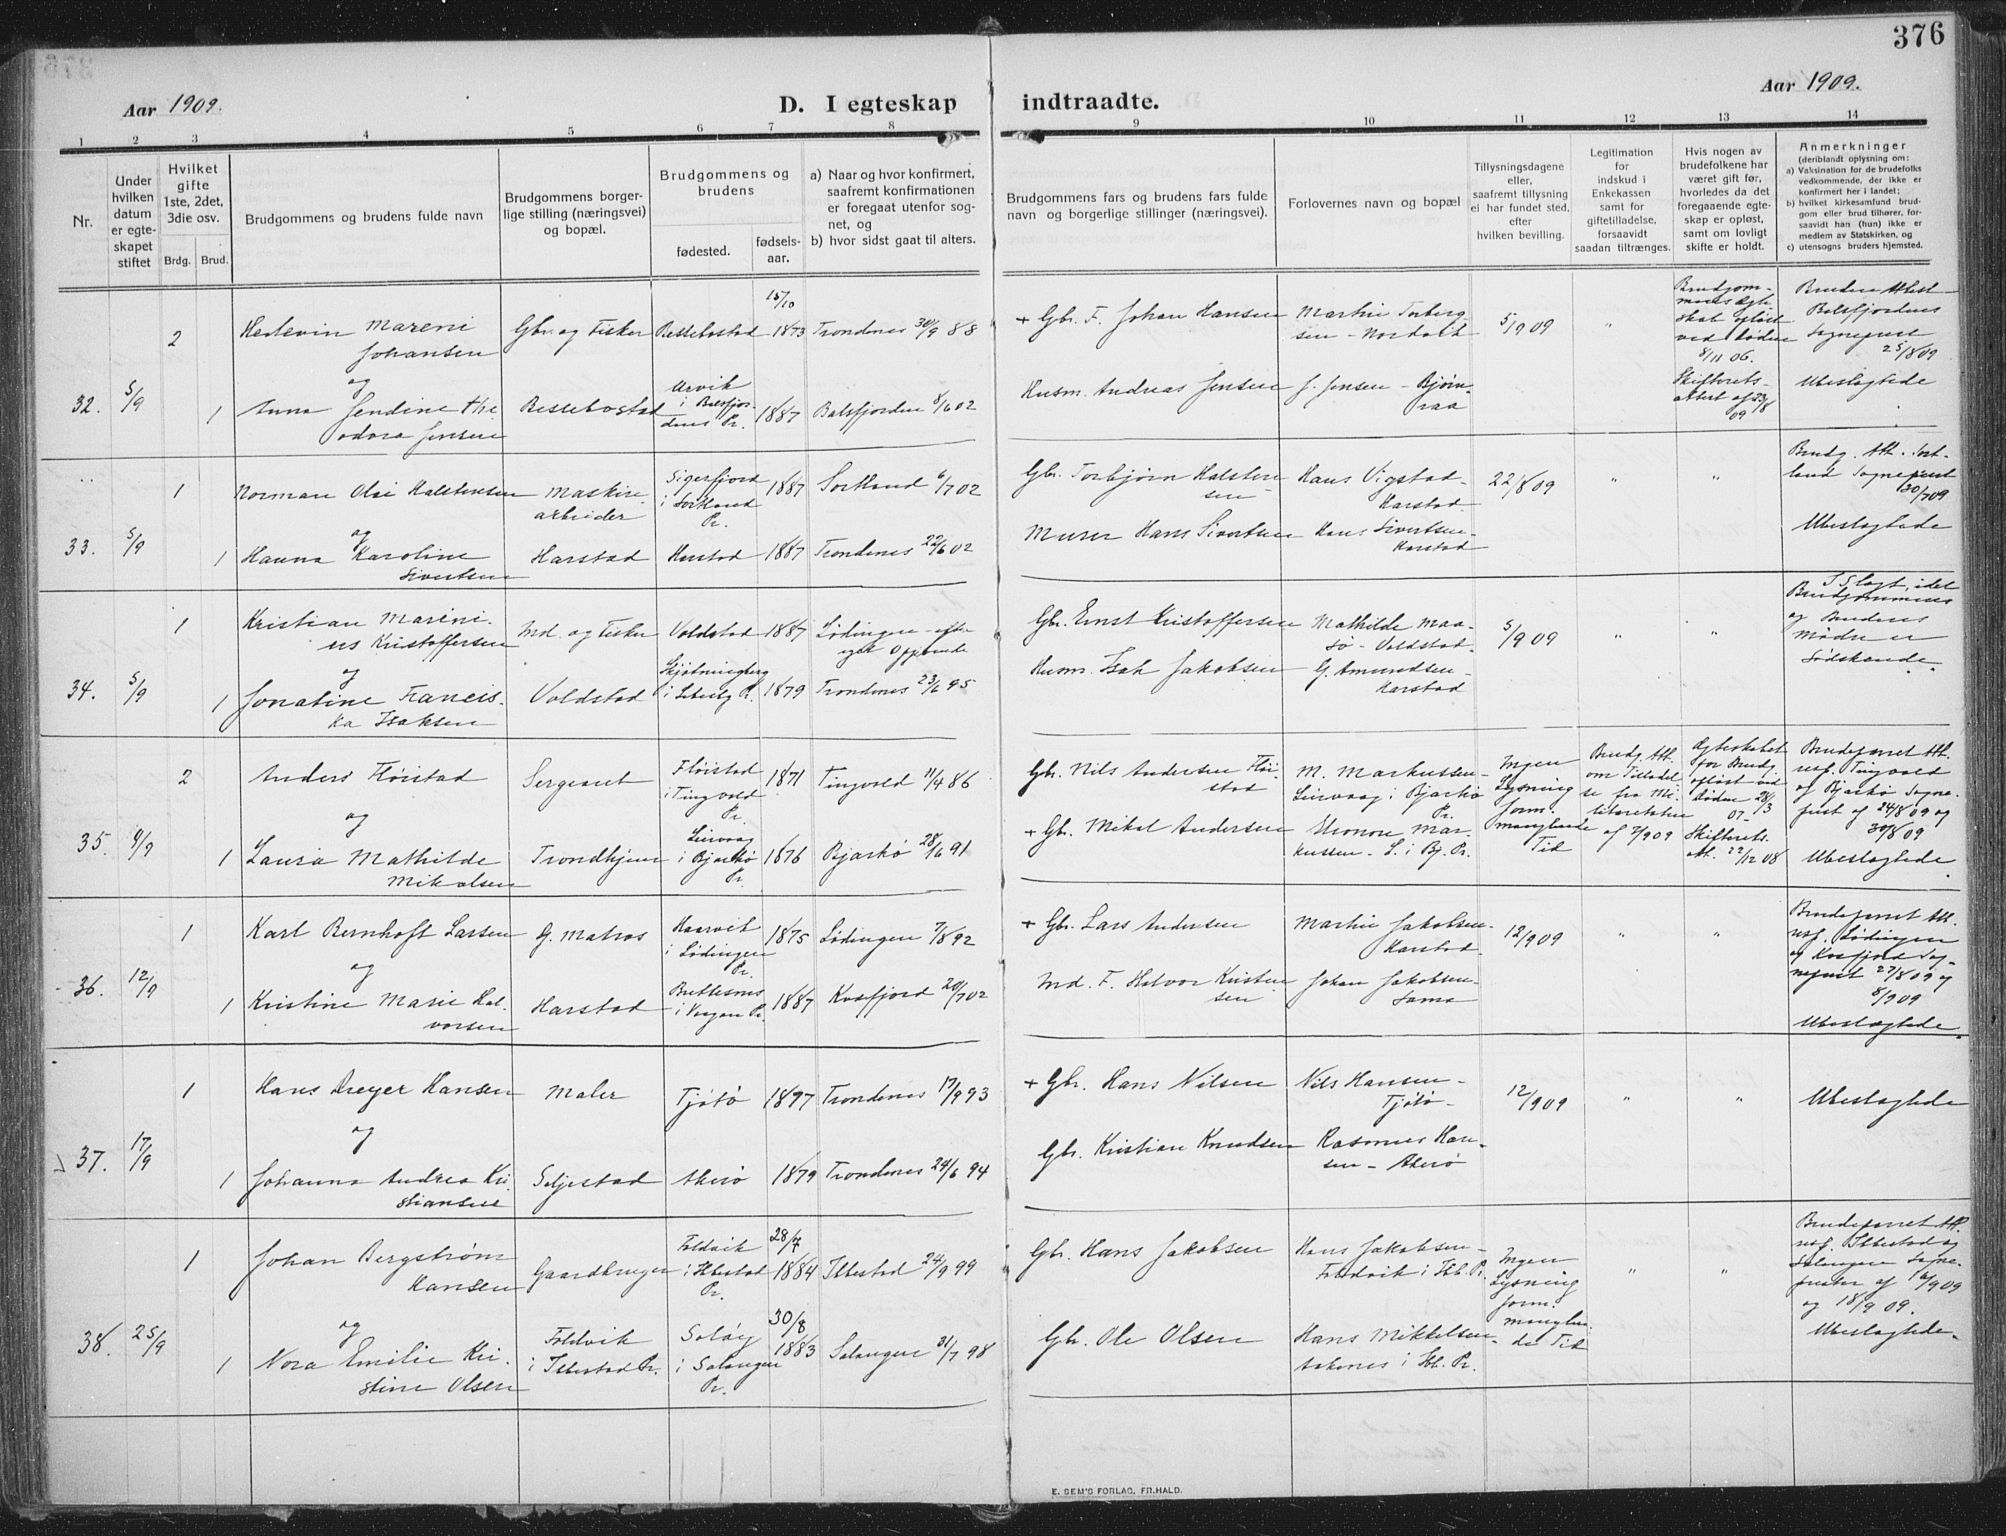 376
Aar 1909.
D. I egteskap indtraadte.
Aar 1909.
1 2 3 4 5 6 7 8 9 10 11 12 13 14
Nr.
Under hvilken datum er egteskapet stiftet
Hvilket gifte 1ste, 2det, 3die osv.
Brdg. Brud.
Brudgommens og brudens fulde navn
Brudgommens borgerlige stilling (næringsvei) og bopæl.
Brudgommens og brudens
fødested.
fødselsaar.
a) Naar og hvor konfirmert, saafremt konfirmationen er foregaat utenfor sognet, og
b) hvor sidst gaat til alters.
Brudgommens fars og brudens fars fulde navn og borgerlige stillinger (næringsvei).
Forlovernes navn og bopæl
Tillysningsdagene eller, saafremt tillysning ei har fundet sted, efter hvilken bevilling.
Legitimation for indskud i Enkekassen samt for giftetilladelse, forsaavidt saadan tiltrænges.
Hvis nogen av brudefolkene har været gift før, hvorledes da det foregaaende egteskap er opløst, samt om lovligt skifte er holdt.
Anmerkninger
(deriblandt oplysning om:
a) Vaksination for de brudefolks vedkommende, der ikke er konfirmert her i landet;
b) hvilket kirkesamfund brudgom eller brud tilhører, forsaavidt han (hun) ikke er medlem av Statskirken, og
c) utensogns bruders hjemsted.
32. 5/9
2 Hertevin Mareni Johansen Gbr. og Fisker Bessebostad 15/10 1873 Trondenes 30/9 88
+ Gbr. F. Johan Hansen Martin Torbergsen - Nordvik 5/9 09 "
Brudgommens Ægteskab opløst ved Døden 8/11 06. Skifterets-attest af 23/8 09
Brudens Attest Balsfjordens Sognepræst 25/8 09
og
1 Anna Jendine Theodora Jensen Bessebostad Arvik i Balsfjordens Pr. 1887 Balsfjorden 8/6 02
Husm. Andreas Jensen J. Jensen - Bjørnraa
Ubeslægtede
33. 5/9
1 Norman Olai Halstensen Maskinarbeider Sigerfjord i Sortland Pr. 1887 Sortland 6/7 02
Gbr. Torbjørn Halstensen Hans Vigstad - Harstad 22/8 09 " "
Brudg. Att. Sortland Sognepræst 30/7 09
og
1 Hanna Karoline Sivertsen Harstad Harstad 1887 Trondenes 22/6 02
Murer Hans Sivertsen Hans Sivertsen - Harstad
Ubeslægtede
34. 5/9
1 Kristian Marenius Kristoffersen Ind. og Fisker Voldstad 1887 Lødingen - efter Opgivende
Gbr. Ernst Kristoffersen Mathilde Maasø - Voldstad. 5/9 09 " "
I Slægt, idet Brudgommens og Brudens Mødre er Sødskende.
og
1 Jonatine Franciska Isaksen Voldstad i Ibestad Pr. 1879 Trondenes 23/6 95
Husm. Isak Jakobsen G. Amundsen - Harstad
35. 9/9
2 Anders Fløistad Sergeant Fløistad i Tingvold Pr. 1871 Tingvold 11/4 86
Gbr. Nils Andersen Fløistad M. Markussen - Leirvaag i Bjarkø Pr.
Ingen Lysning form. manglende Tid
Brudg. Att. om Tilladelse fra Militæretaten af 7/9 09
Ægteskabet for Brudg. opløst ved Døden 28/3 07. Skifterets-att. 22/12 08
Brudeparret Att. resp. Tingvold og Bjarkø Sognepræst af 24/8 09 og 30/8 09
og
1 Laura Mathilde Mikalsen Trondhjem Leirvaag i Bjarkø Pr. 1876 Bjarkø 28/6 91
+ Gbr. Mikal Andersen Eleonore Markussen - L. i Bj. Pr.
Ubeslægtede.
36. 12/9
1 Karl Bernhoft Larsen G. Matros Haarvik i Lødingen Pr. 1875 Lødingen 7/8 92
+ Gbr. Lars Andersen Martin Jakobsen - Harstad 12/9 09 " "
Brudeparret Att. resp. Lødingen og Kvæfjord Sognepræst 27/8 09 og 8/9 09
og
1 Kristine Marie Halvorsen Harstad i Vaagan Pr. 1887 Kvæfjord 20/7 02
Ind. F. Halvor Kristensen Johan Jakobsen - Sama
Ubeslægtede.
37. 17/9
1 Hans Dreyer Hansen Maler Tjøtø 1877 Trondenes 17/9 93
+ Gbr. Hans Nilsen Nils Hansen - Tjøtø - 12/9 09 " "
Ubeslægtede
og
1 Johanna Andrea Kristiansen Seljestad Akerø 1879 Trondenes 24/6 94
Gbr. Kristian Knudsen Rasmus Hansen - Akerø
38. 25/9
1 Johan Bergstrøm Hansen Gaardbruger Foldvik i Ibbestad Pr. 28/7 1884 Ibbestad 24/9 99
Gbr. Hans Jakobsen Hans Jakobsen - Foldvik i Ibb. Pr.
Ingen Lysning form. manglende Tid " "
Brudeparret Att. resp. Ibbestad og Salangen Sognepræster af 16/9 09 og 18/9 09.
og
1 Nora Emilie Kristine Olsen Foldvik i Ibbestad Pr. Soløy i Salangen Pr. 30/8 1883 Salangen 31/7 98
Gbr. Ole Olsen Hans Mikkelsen - i Ibb. Pr.
Ubeslægtede.
E. SEM'S FORLAG, FR.HALD.